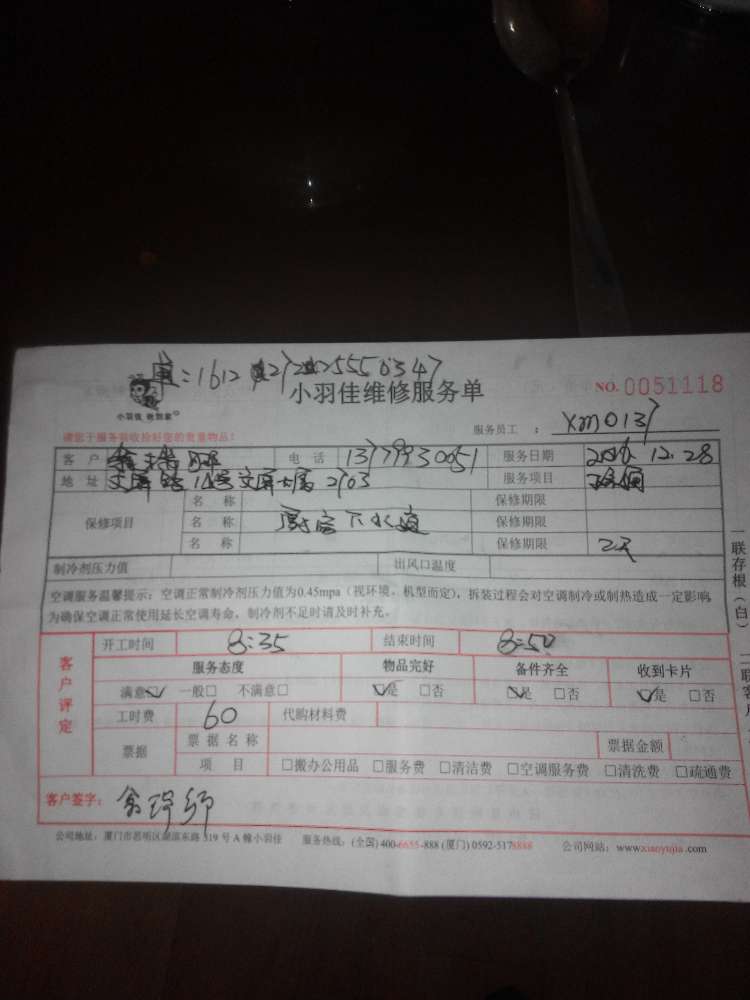 小羽佳维修服务单
NO. 0051118
小羽佳 帮到家
服务员工 : XM0137
请您于服务前收拾好您的贵重物品!
客户 电话 服务日期 12.28
地址 2703 服务项目
保修项目 名称 保修期限
名称 厨房下水道 保修期限
名称 保修期限 2天
制冷剂压力值 出风口温度
空调服务温馨提示:空调正常制冷剂压力值为0.45mpa(视环境、机型而定),拆装过程会对空调制冷或制热造成一定影响
为确保空调正常使用延长空调寿命,制冷剂不足时请及时补充。
客户评定
开工时间 8:35 结束时间 8:50
服务态度 物品完好 备件齐全 收到卡片
满意☑ 一般□ 不满意□ ☑是 □否 ☑是 □否 ☑是 □否
工时费 60 代购材料费
票据 票据名称 票据金额
项目 □搬办公用品 □服务费 □清洁费 □空调服务费 □清洗费 □疏通费
客户签字:
公司地址:厦门市思明区湖滨东路319号A幢小羽佳 服务热线:(全国)400-6655-888 (厦门) 0592-5178888 公司网站:www.xiaoyujia.com
一联存根(白)